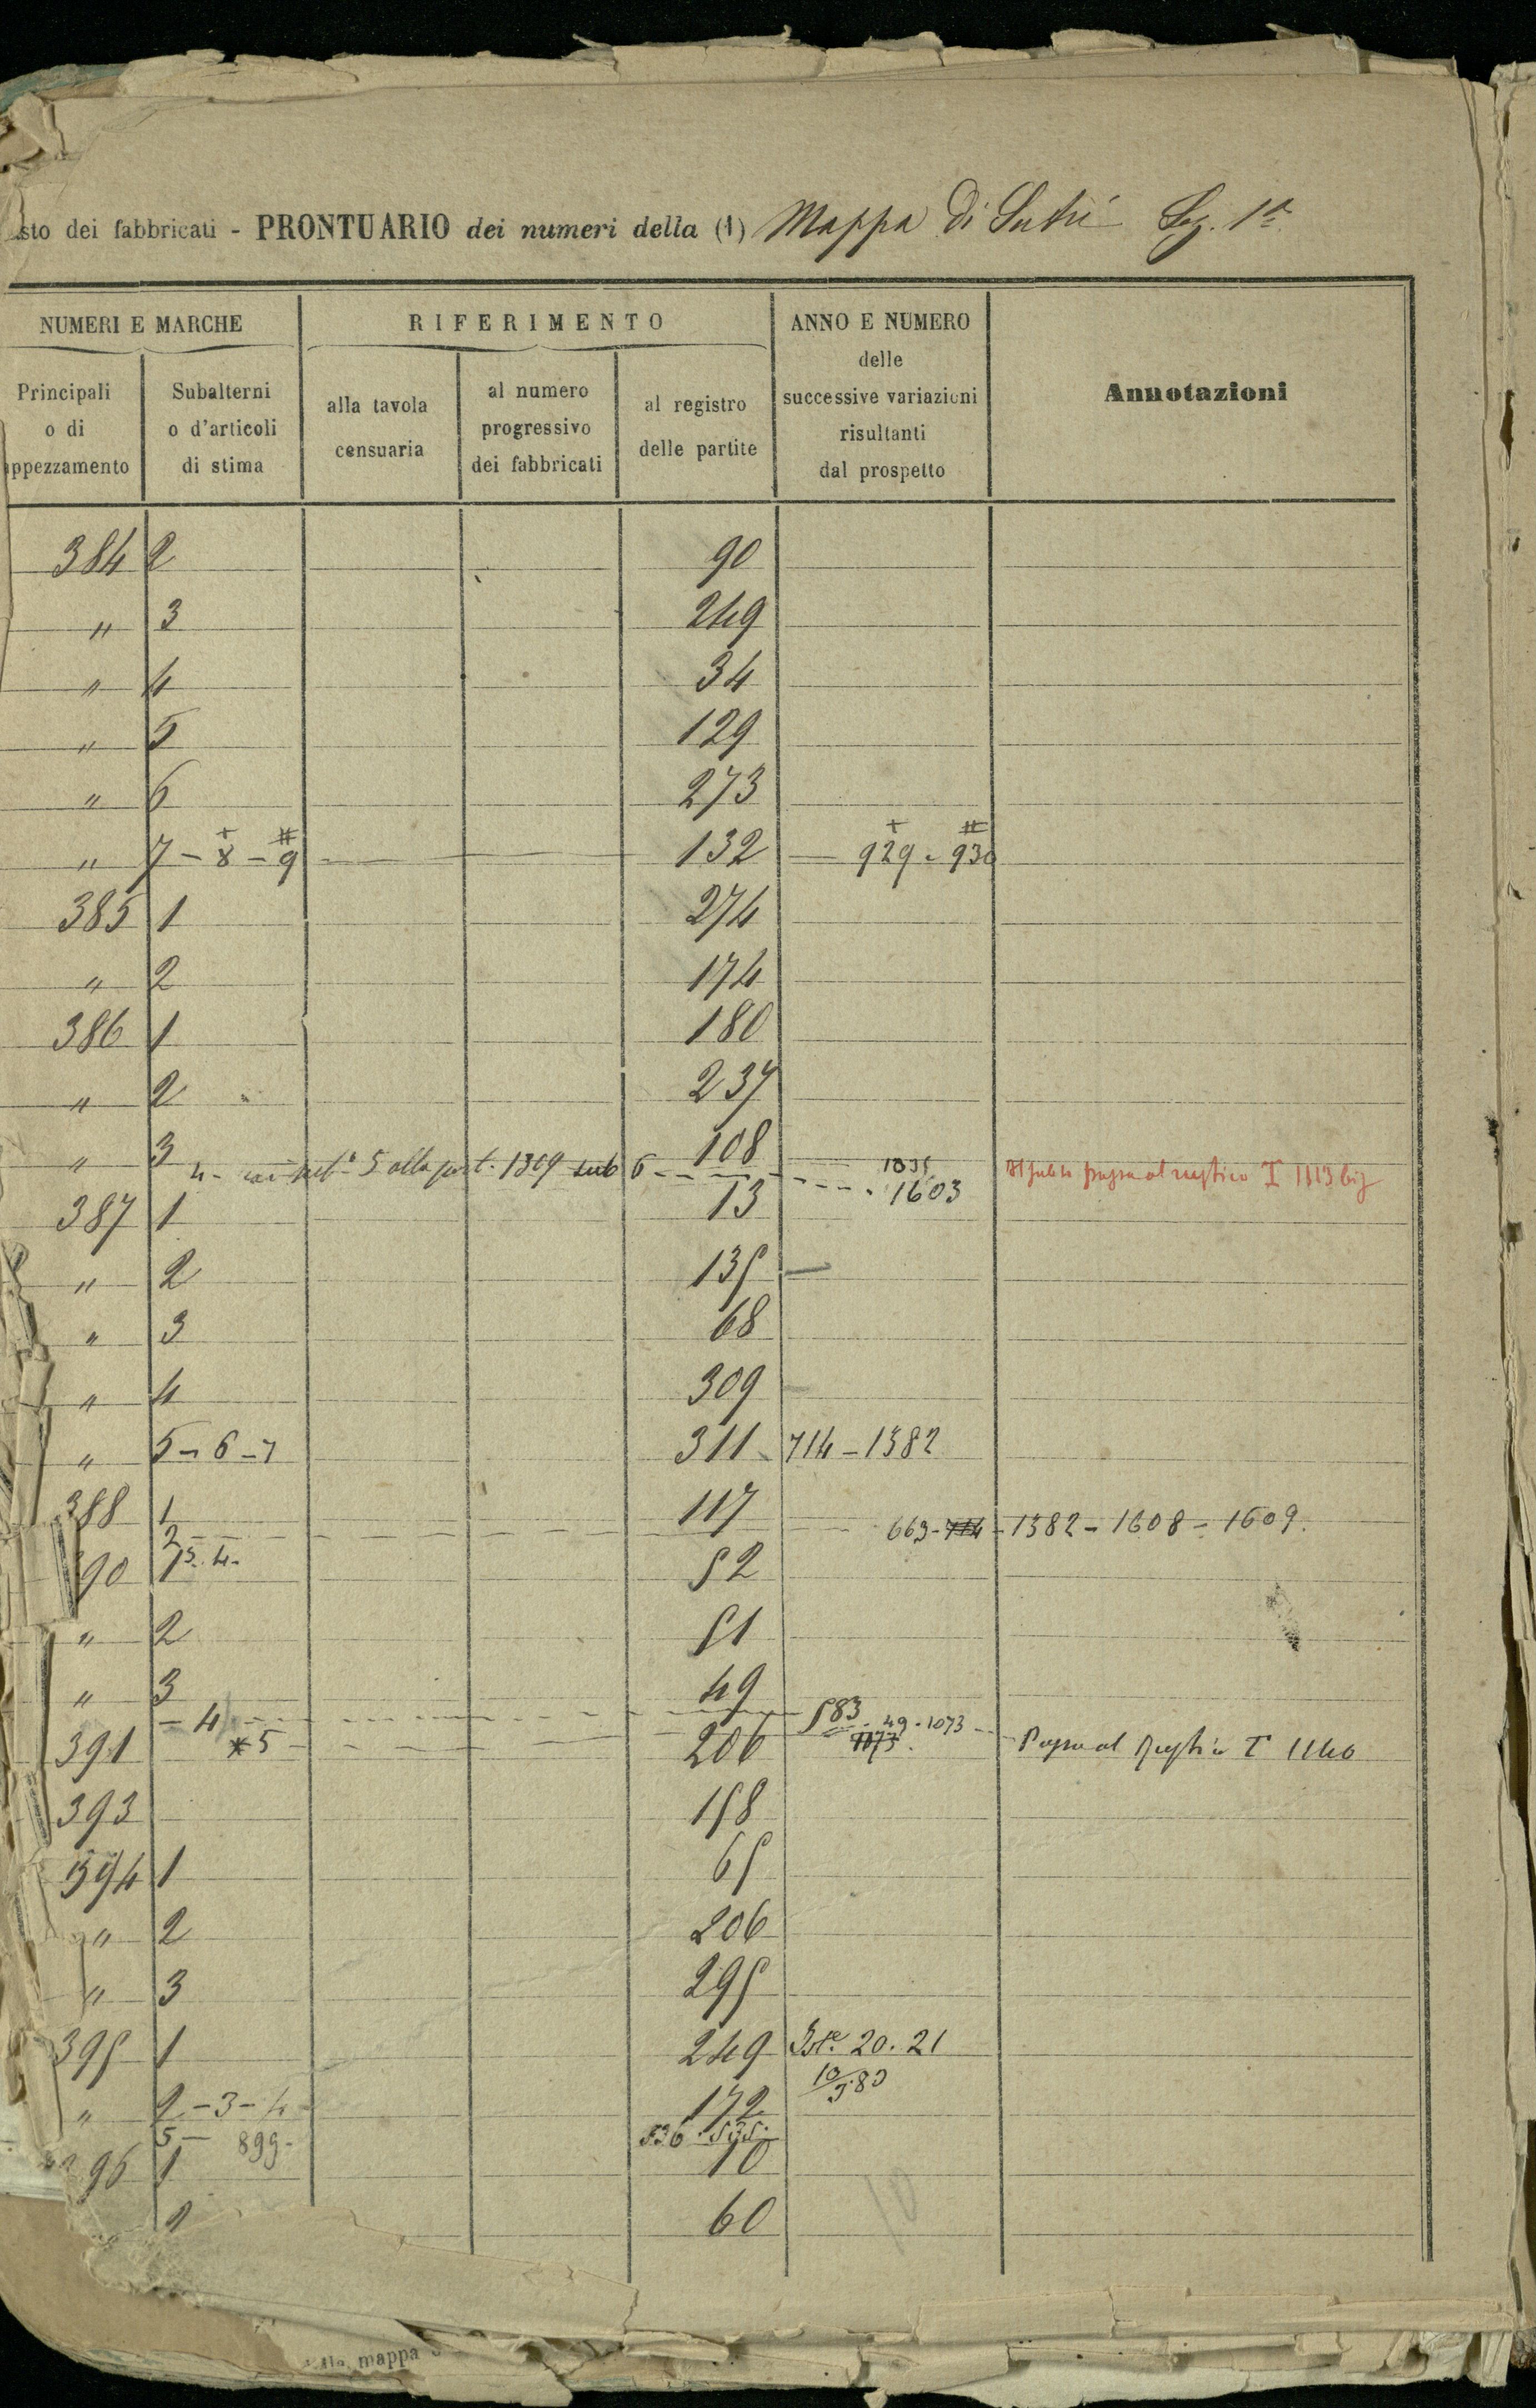 sto dei fabbricati - PRONTUARIO dei numeri della (1) Mappa di Sutri Sez. 1ª
NUMERI E MARCHE
RIFERIMENTO
ANNO E NUMERO
delle
successive variazioni
risultanti
dal prospetto
Annotazioni
Principali
o di
appezzamento
Subalterni
o d'articoli
di stima
alla tavola
censuaria
al numero
progressivo
dei fabbricati
al registro
delle partite
384 2 90
" 3 249
" 4 34
" 5 129
" 6 273
+ # + #
" 7 - 8 - 9 132 929 - 930
385 1 274
" 2 174
386 1 180
" 2 237
" 3 108
4 - 5 alla part. 1309 sub 6 1603 passa al rustico T 1113 bis
387 1 13
" 2 135
" 3 68
" 4 309
" 5 - 6 - 7 311 714 - 1382
388 1 117
2 663 - 714 - 1382 - 1608 - 1609.
3. 4 -
90 1 52
" 2 51
" 3 49
- 4 583 - 49 - 1073
391 * 5 206 1073 Passa al Rustico T 1140
393 158
394 1 65
" 2 206
" 3 295
395 1 249 20. 21
" 2 - 3 - 4 172 10/5.83
5 - 899 - 536 . 535.
96 1 10
10
2 60
mappa